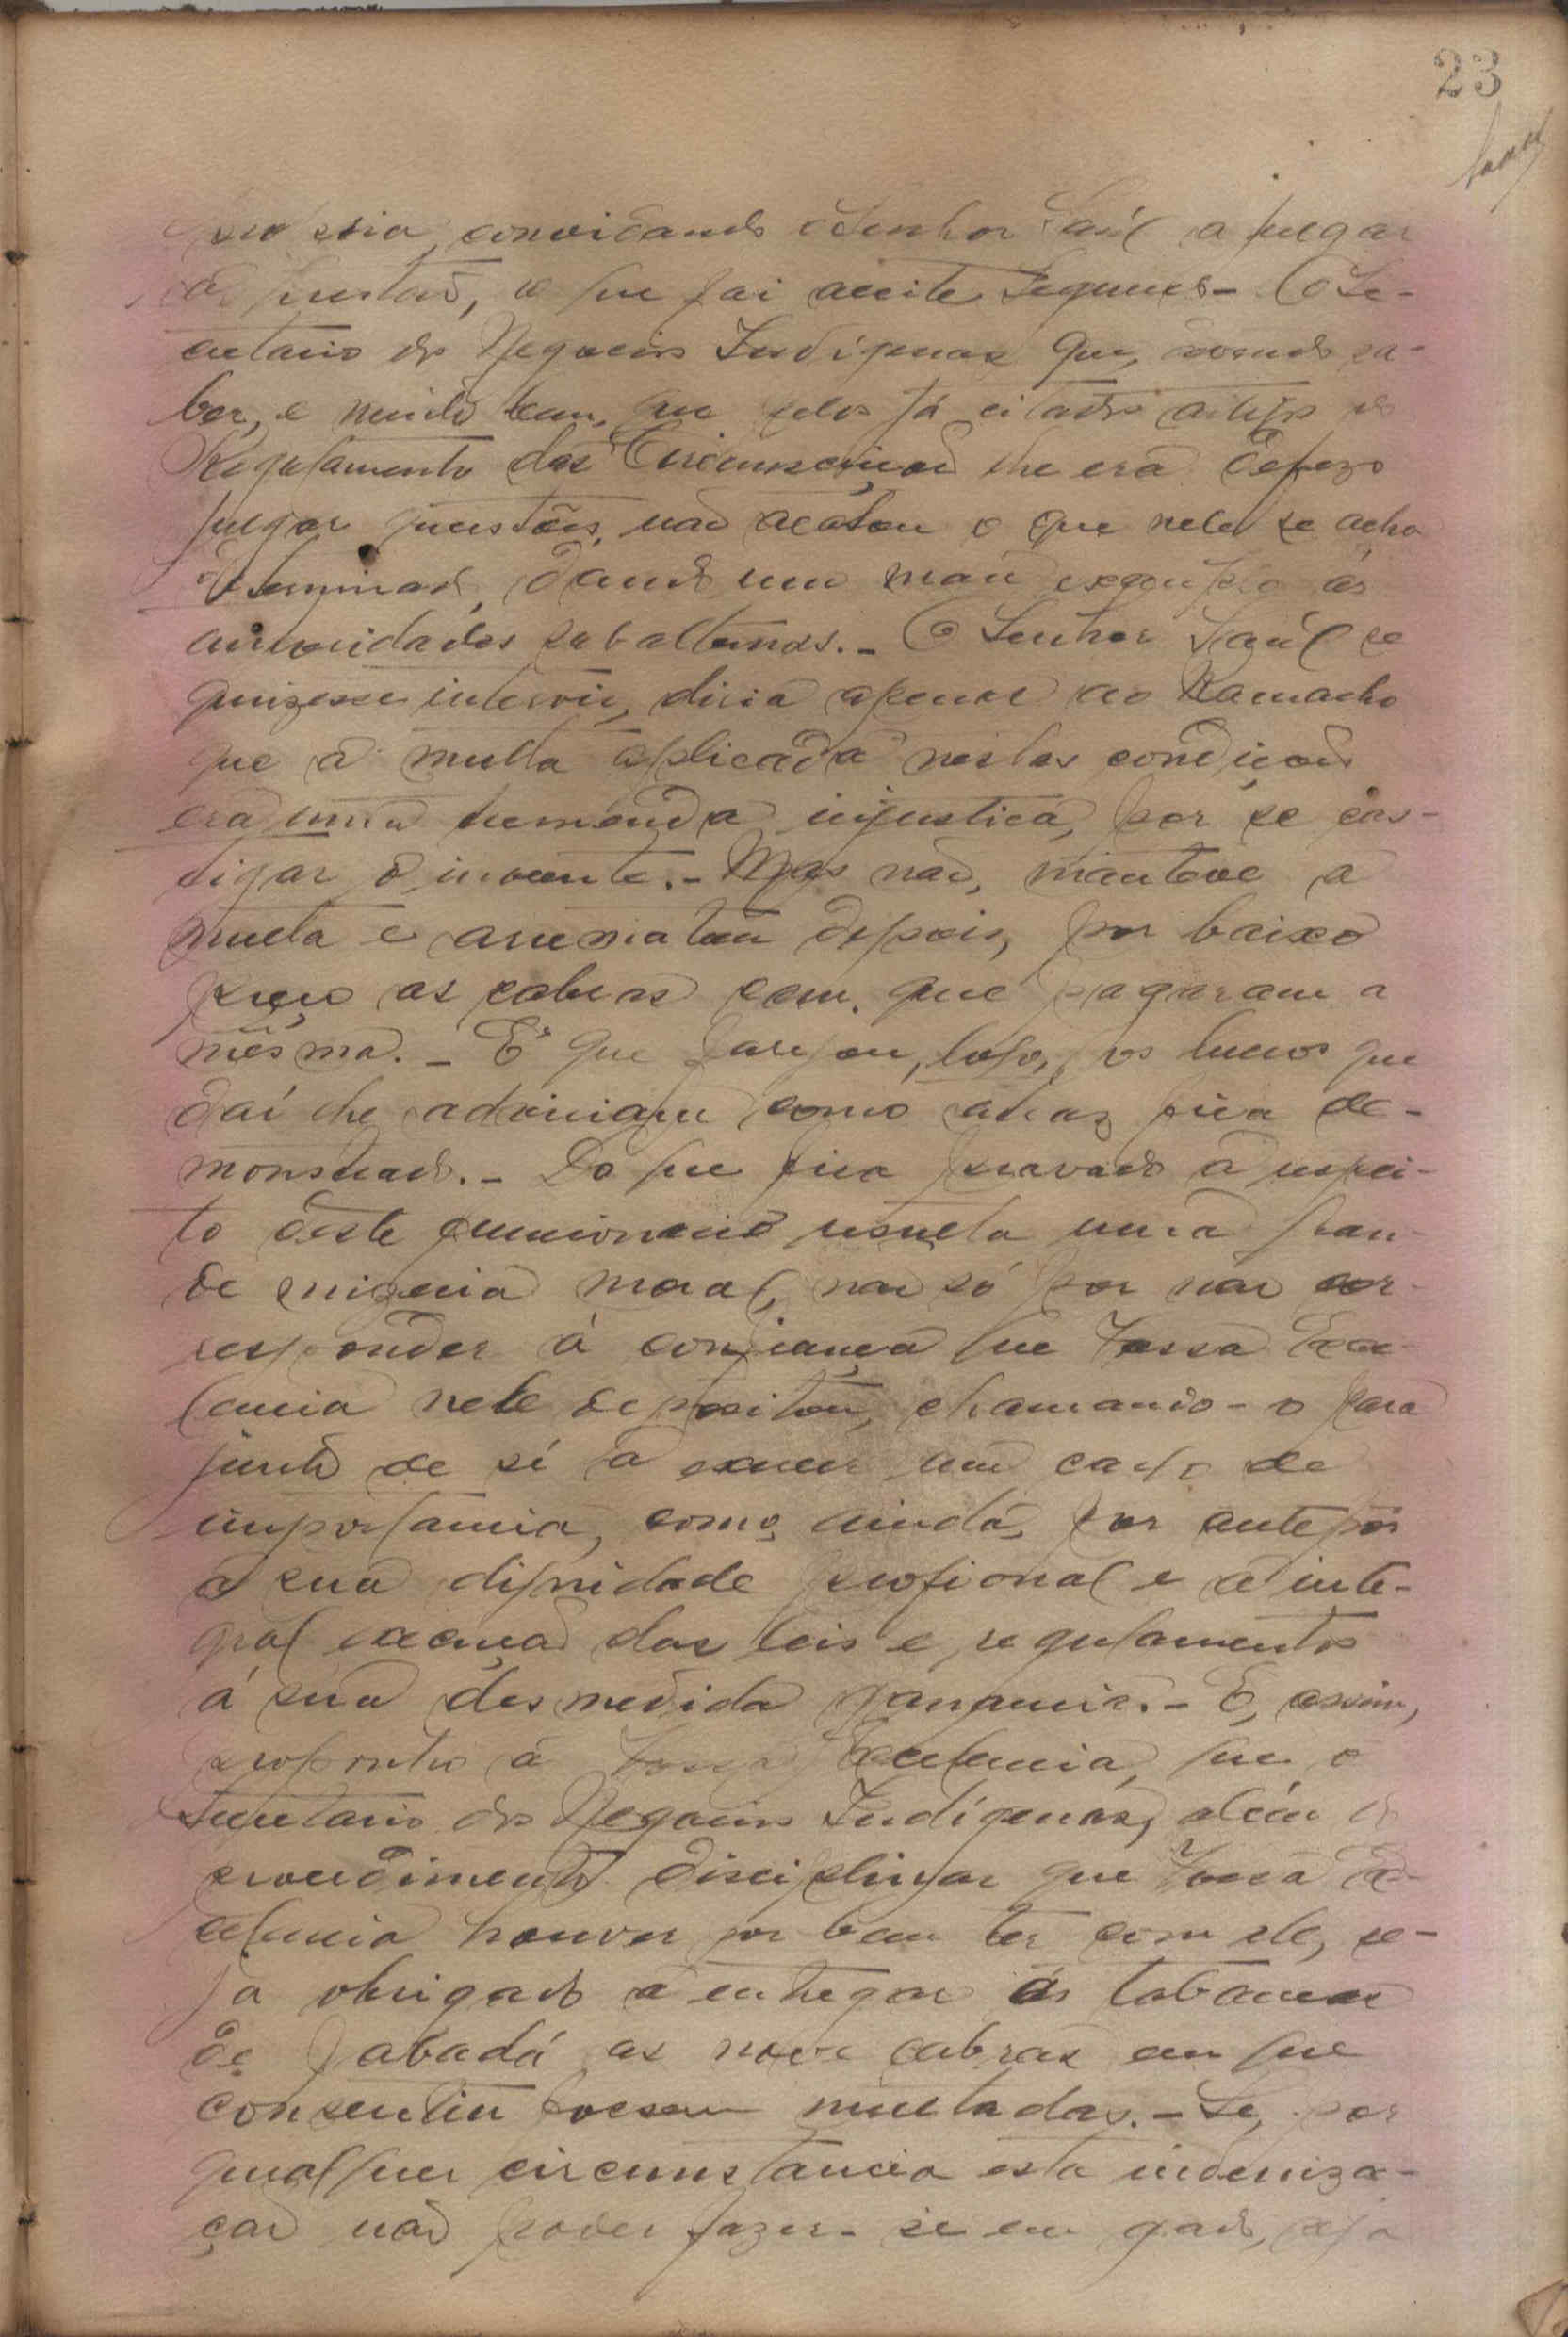 23
convidando o Senhor Saúl a julgar
a questão, o que foi aceite. Segundo - O Se-
cretario dos Negocios Indígenas que, devendo sa-
ber, e muito bem, que pelos já citados artigos do
Regulamento das Circunscrições lhe era defezo
julgar questões, não acatou o que nele se acha
determinado, dando um mau exemplo ás
autoridades subalternas. - O Senhor Saúl se
quizesse intervir, diria apenas ao Ramacho
que a multa aplicada nestas condições
era uma tremenda injustica, por se cas-
tigar o inocente. - Mas não, manteve a
multa e arrematou depois, por baixo
preço as cabras com que pagaram a
mêsma. - É que farejou, logo, os lucros que
daí lhe adviriam como atraz fica de-
monstrado. - Do que fica provado a respei-
to dêste funcionario resulta uma gran-
de mizeria moral, não só por não cor-
responder á confiança que Vossa Exce-
lencia nele depositou, chamando-o para
junto de si a exercer um cargo de
importancia, como, ainda, por antepôr
a sua dignidade profional e a inte-
gral execução das leis e regulamentos
á sua desmedida ganancia. - E, assim,
proponho a Vossa Excelencia, que o
Secretario dos Negocios Indígenas, além do
procedimento disciplinar que Vossa Ex-
celencia houver por bem ter com ele, se-
ja obrigado a entregar ás tabancas
de Jabadá as nove cabras em que
consentiu fossem multadas. - Se, por
qualquer circumstancia esta indeniza-
ção não poder fazer-se em gado, seja